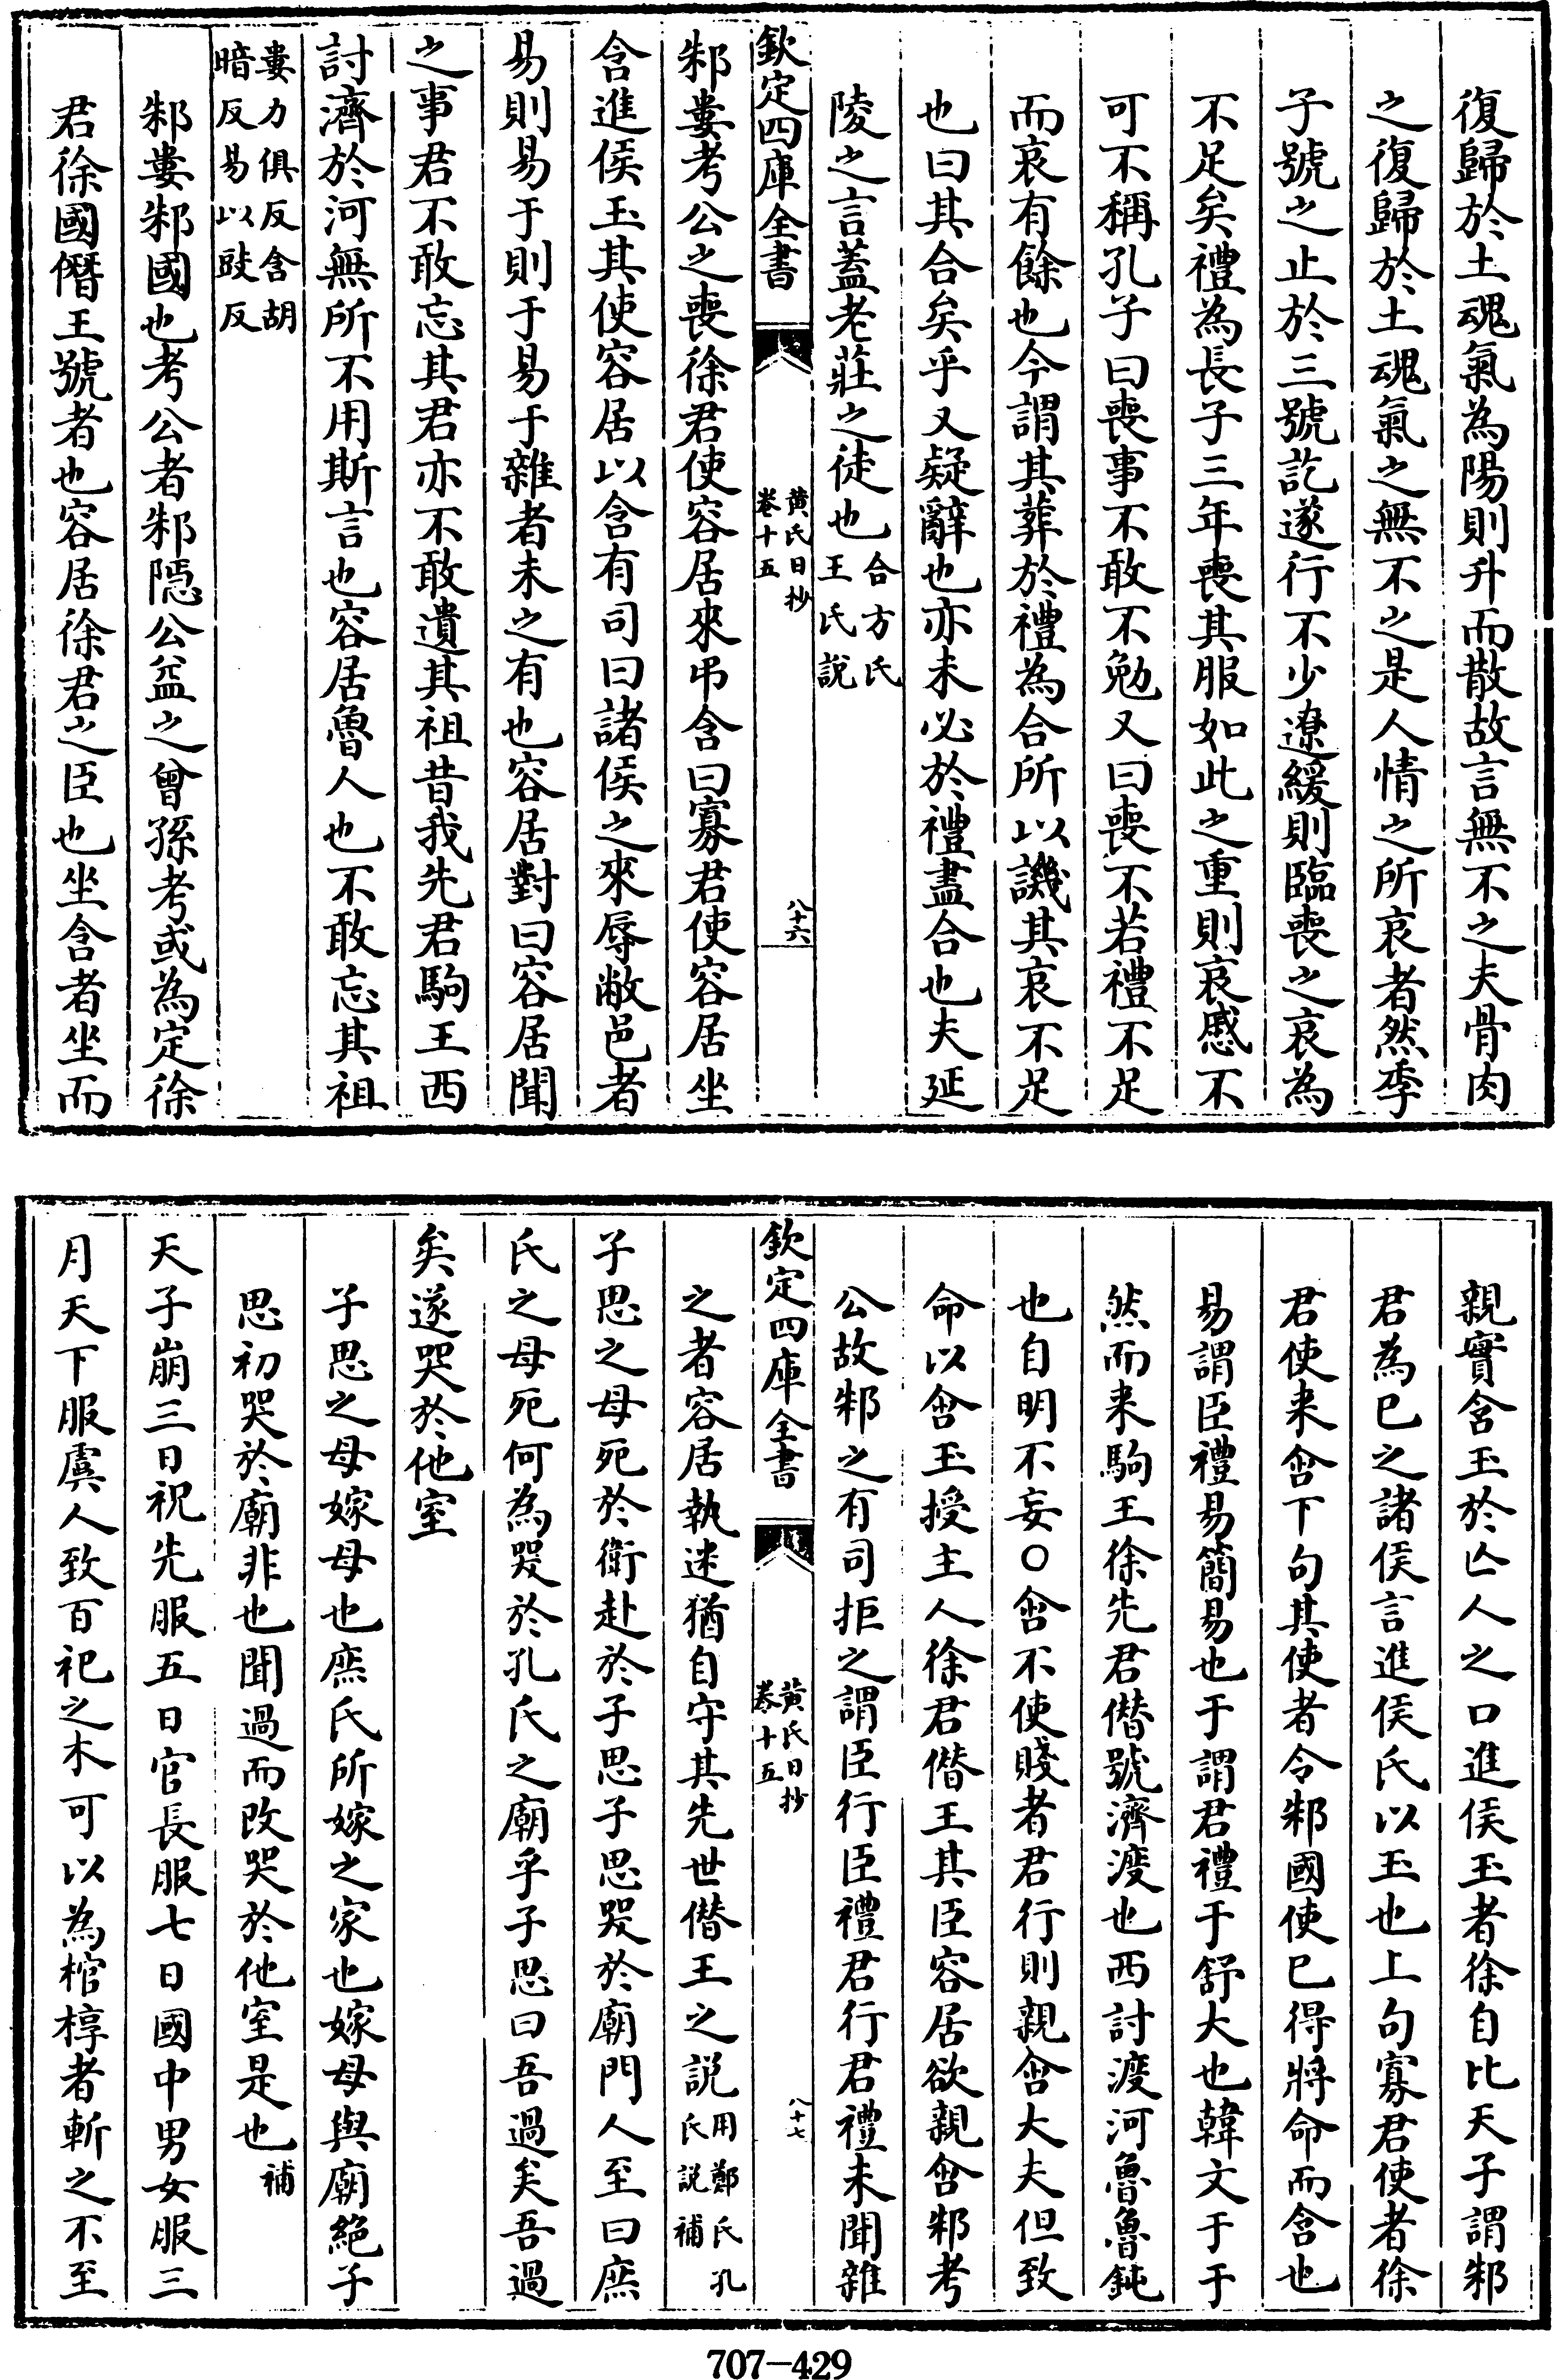 復歸於土魂氣為陽則升而散故言無不之夫骨肉
之復歸於土魂氣之無不之是人情之所哀者然季
子號之止於三號訖遂行不少遼緩則臨喪之哀為
不足矣禮為長子三年喪其服如此之重則哀慼不
可不稱孔子曰喪事不敢不勉又曰喪不若禮不足
而哀有餘也今謂其葬於禮為合所以譏其哀不足
也曰其合矣乎又疑辭也亦未必於禮盡合也夫延
陵之言蓋老莊之徒也合方氏王氏說
欽定四庫全書 黄氏日抄卷十五 八十六
邾婁考公之喪徐君使容居來弔含曰寡君使容居坐
含進侯玉其使容居以含有司曰諸侯之來辱敝邑者
易則易于則于易于雜者未之有也容居對曰容居聞
之事君不敢忘其君亦不敢遺其祖昔我先君駒王西
討濟於河無所不用斯言也容居魯人也不敢忘其祖
婁力俱反含胡暗反易以豉反
邾婁邾國也考公者邾隱公益之曾孫考或為定徐
君徐國僭王號者也容居徐君之臣也坐含者坐而
親實含玉於亾人之口進侯玉者徐自比天子謂邾
君為己之諸侯言進侯氏以玉也上句寡君使者徐
君使来含下句其使者令邾國使已得將命而含也
易謂臣禮易簡易也于謂君禮于舒大也韓文于于
然而来駒王徐先君僭號濟渡也西討渡河魯魯鈍
也自明不妄○含不使賤者君行則親含大夫但致
命以含玉授主人徐君僭王其臣容居欲親含邾考
公故邾之有司拒之謂臣行臣禮君行君禮未聞雜
欽定四庫全書 黄氏日抄卷十五 八十七
之者容居執迷猶自守其先世僭王之說用鄭氏孔氏說補
子思之母死於衛赴於子思子思哭於廟門人至曰庶
氏之母死何為哭於孔氏之廟乎子思曰吾過矣吾過
矣遂哭於他室
子思之母嫁母也庶氏所嫁之家也嫁母與廟絕子
思初哭於廟非也聞過而改哭於他室是也補
天子崩三日祝先服五日官長服七日國中男女服三
月天下服虞人致百祀之木可以為棺椁者斬之不至
707-429